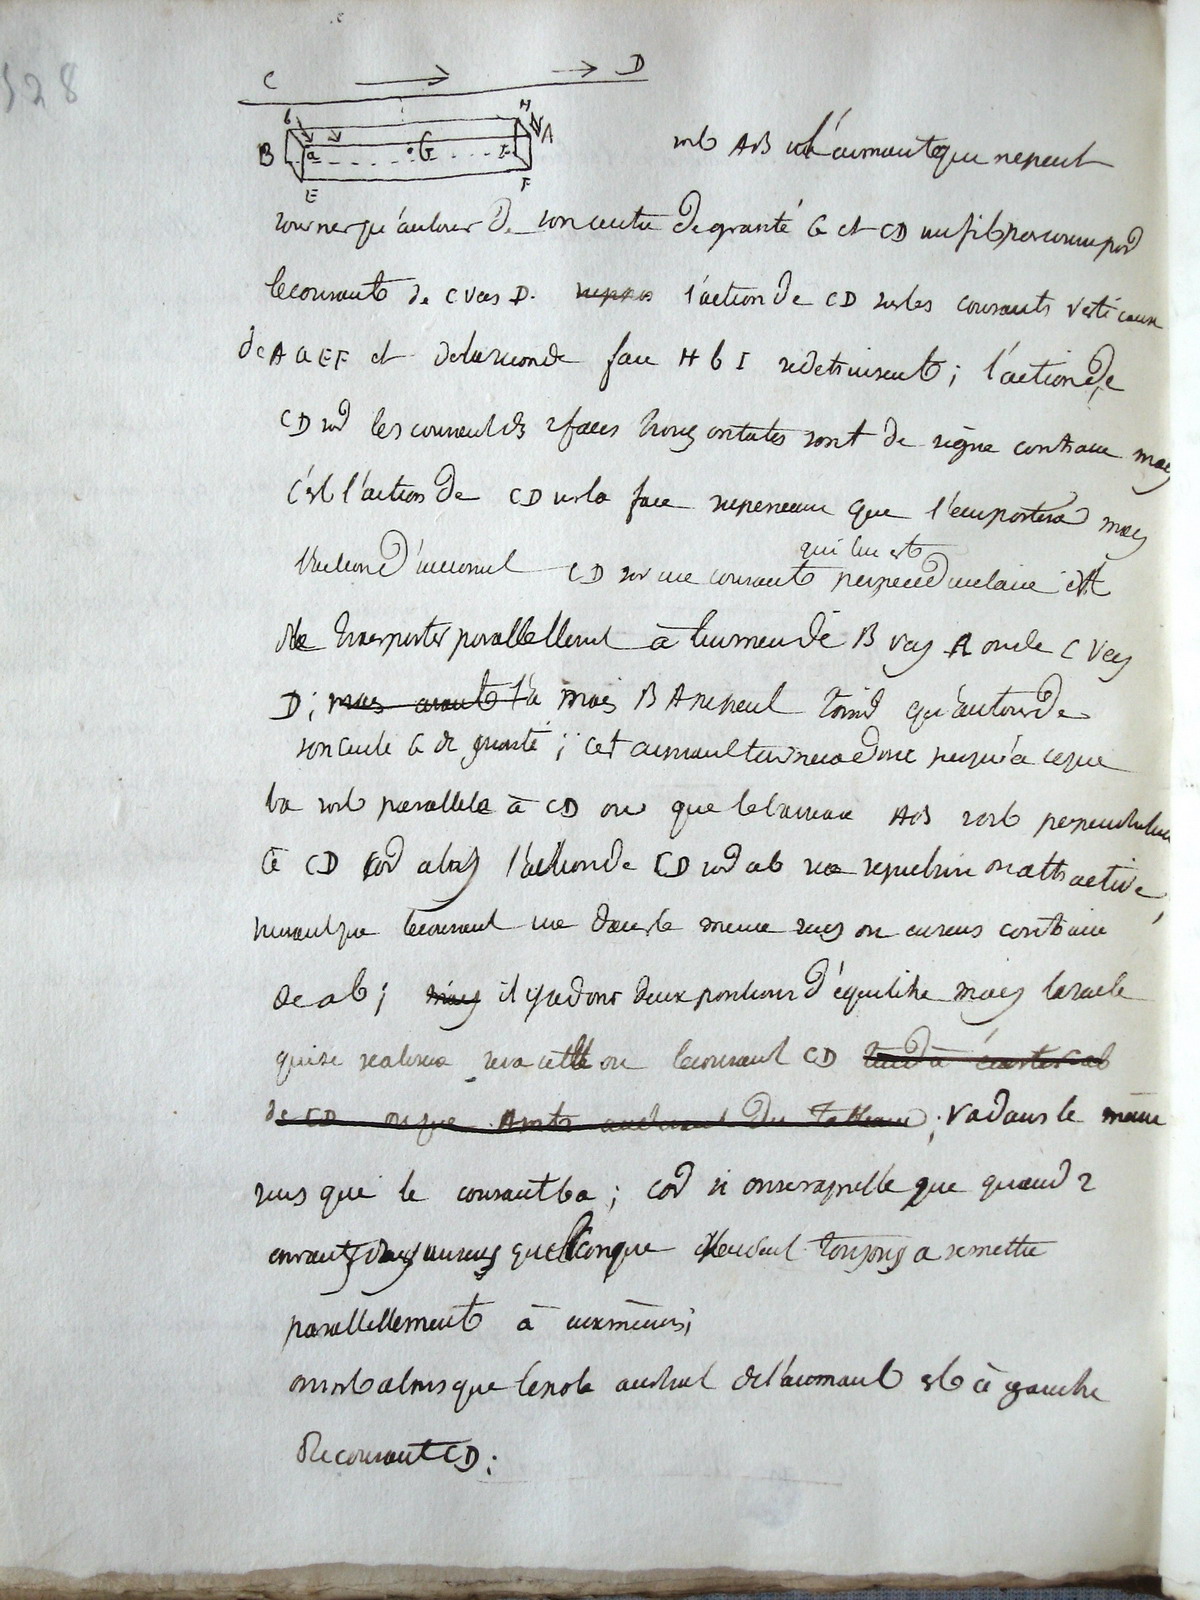 328
C D
b H
B a G I A
E F
soit AB l'aimant que ne peut
tourner qu'autour de son centre de gravité G et CD un fil parcouru par
le courant de C vers D. l'action de CD sur les courants verticaux
de A a EF et de la seconde face H b I se detruisent ; l'action de
CD sur les courants des 2 faces horizontales sont de signe contraire mais
c'est l'action de CD sur la face superieure que l'emportera mais
l'action d'un courant CD sur un courant qui lui est perpendiculaire est
de transporter parallellement à lui meme de B vers A ou de C vers
D ; mais avant l'a mais BA ne peut tourner qu'autour de
son centre G de gravité ; cet aimant tournera donc jusqu'a ce que
ba soit parallele à CD ou que le barreau AB soit perpendiculaire
à CD car alors l'action de CD sur ab sera repulsive ou attractive
suivant que le courant ira dans le meme sens ou en sens contraire
de ab ; mais il y a donc deux positions d'équilibre mais la seule
qui se realisera sera celle ou le courant CD tend à écarter ab
de CD ; va dans le même
sens que le courant ba ; car si on se rapelle que quand 2
courants dans un sens quelconque tendent toujours a se mettre
parallellement à eux mêmes ;
on voit alors que le pole austral de l'aimant est à gauche
du courant CD ;